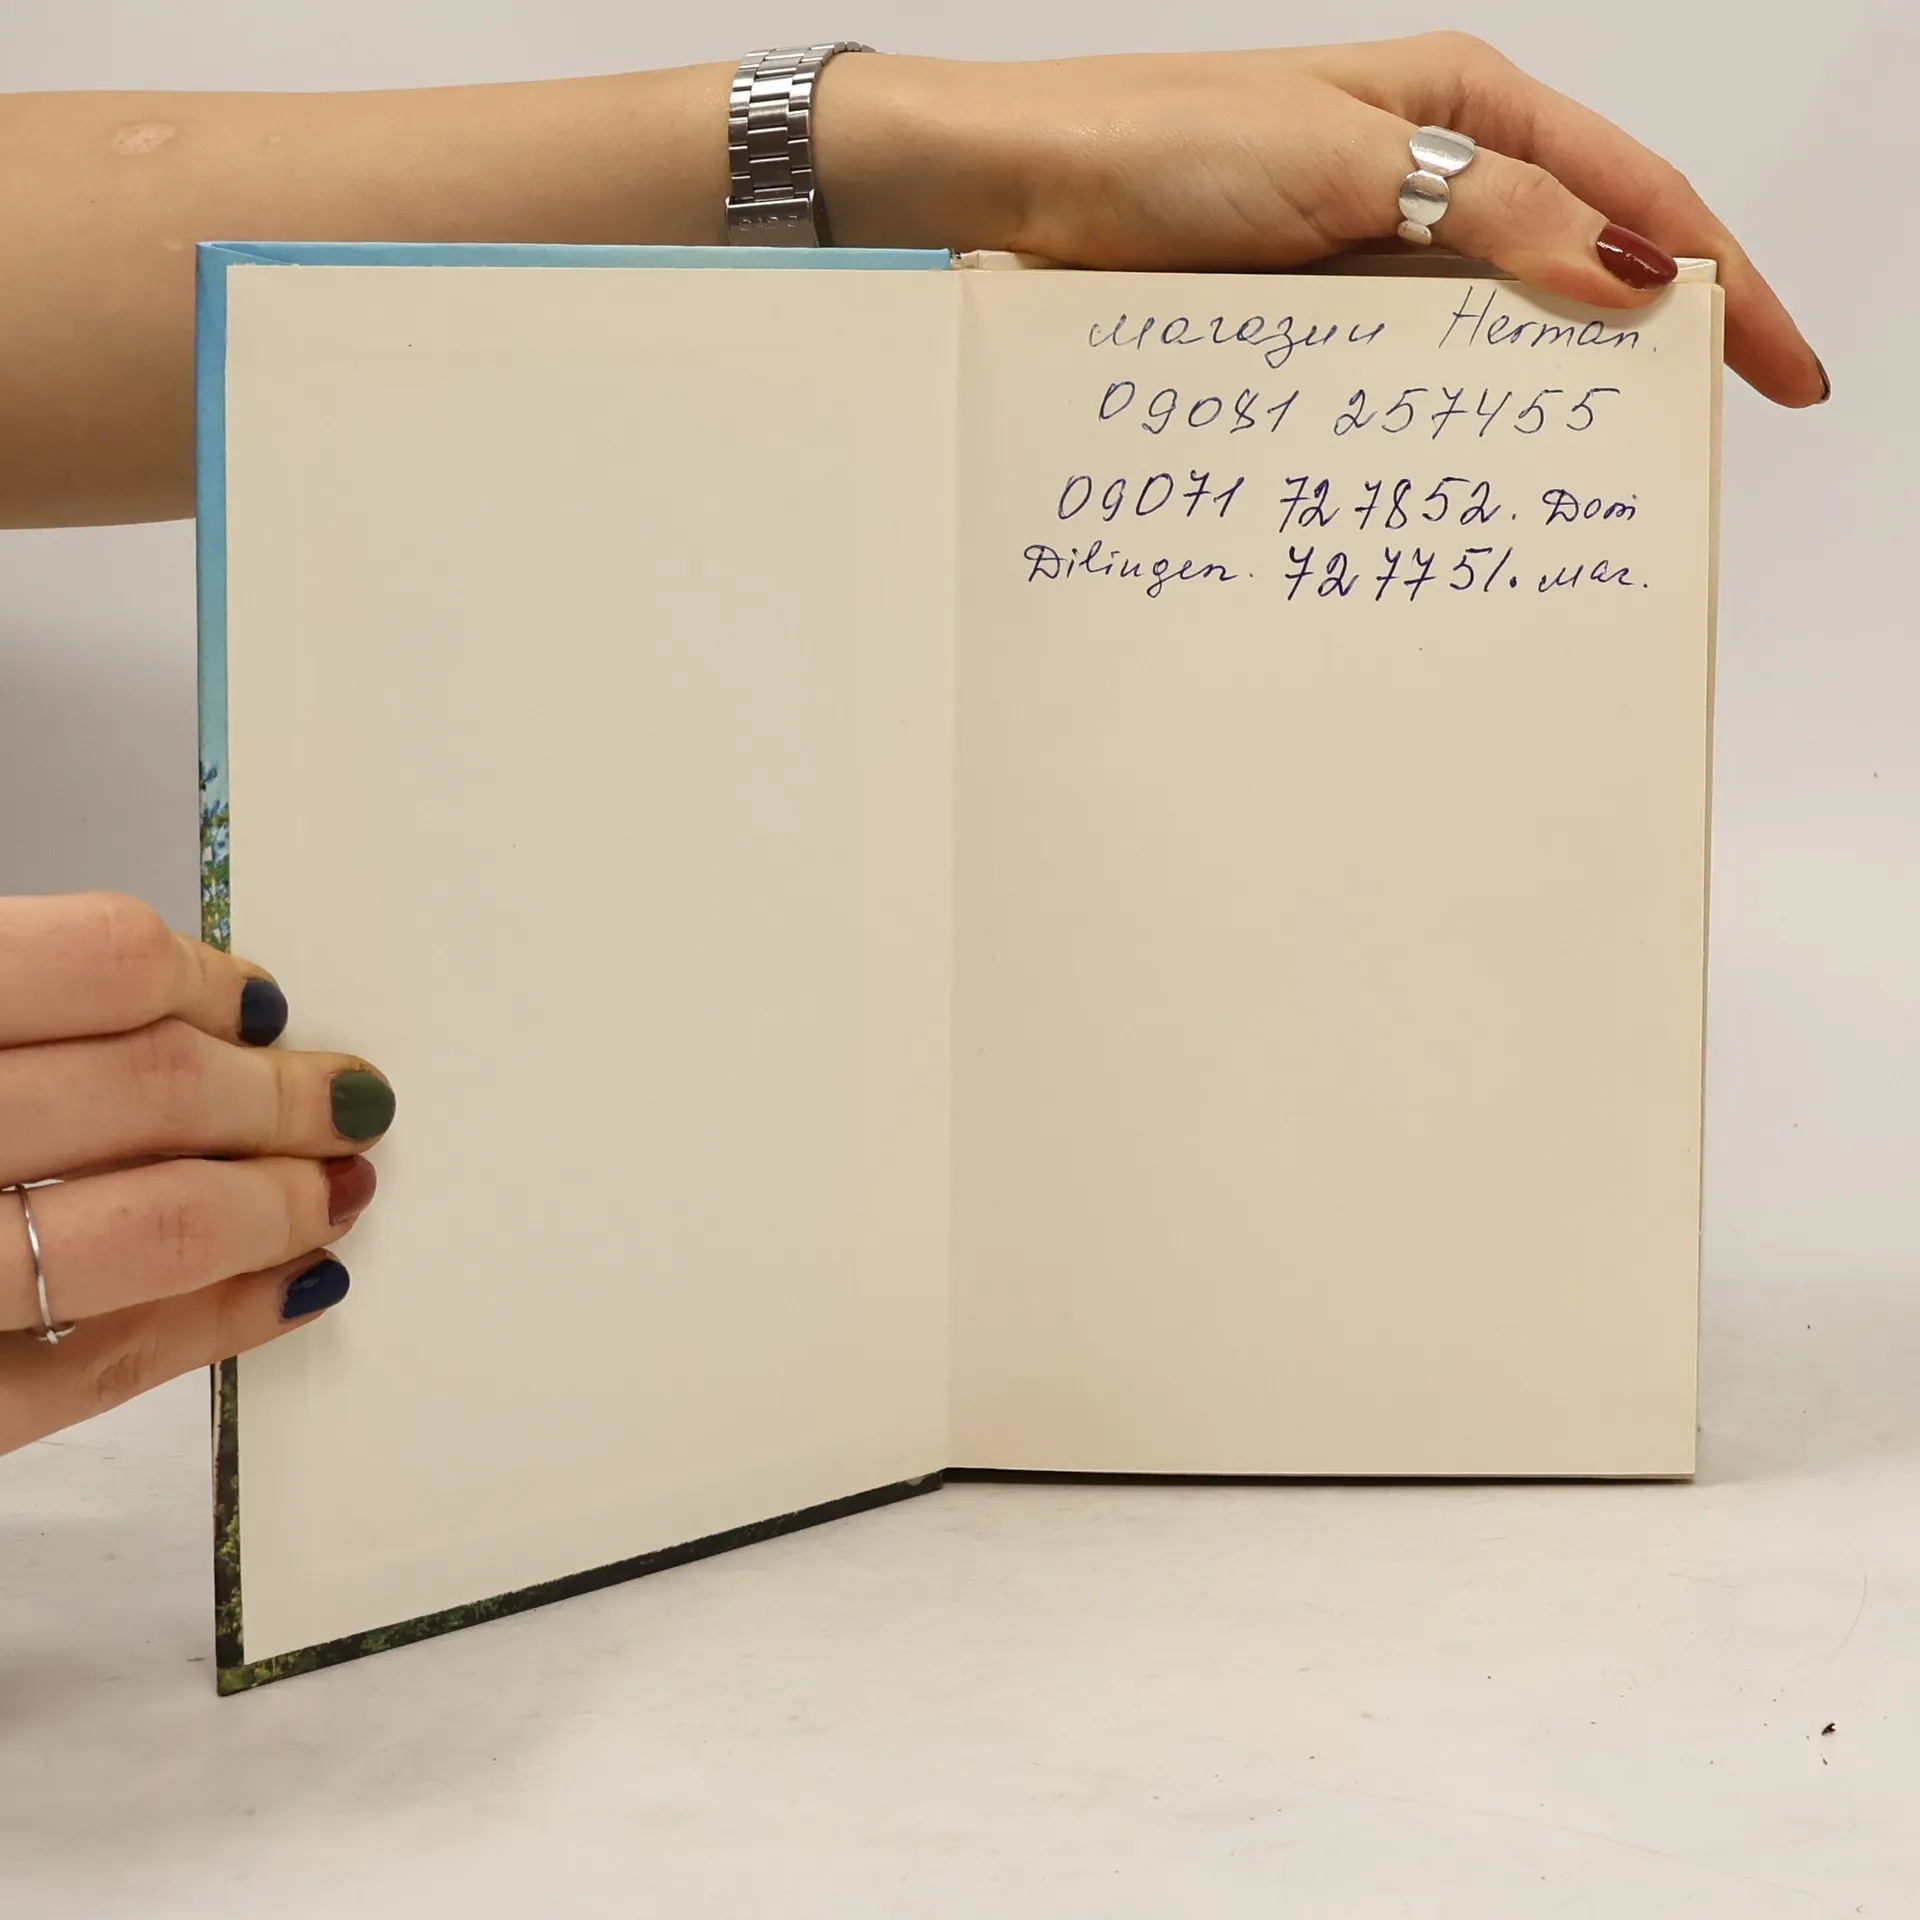 магазин Herman.
09081 257455
09071 727852. Dom
Dilingen. 727751. маг.